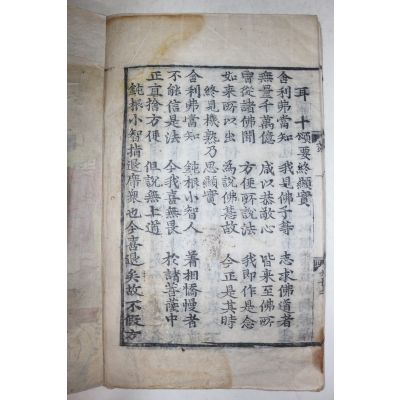 耳十頌要終顯實
舍利弗當知　我見佛子等　志求佛道者
無量千萬億　咸以恭敬心　皆來至佛所
曾從諸佛聞　方便所說法　我即作是念
如來所以出　為說佛慧故　今正是其時
終見機熟乃思顯實
舍利弗當知　鈍根小智人　著相憍慢者
不能信是法　今我喜無畏　於諸菩薩中
正直捨方便　但說無上道
鈍根小智指退席衆也今喜退矣故不假方